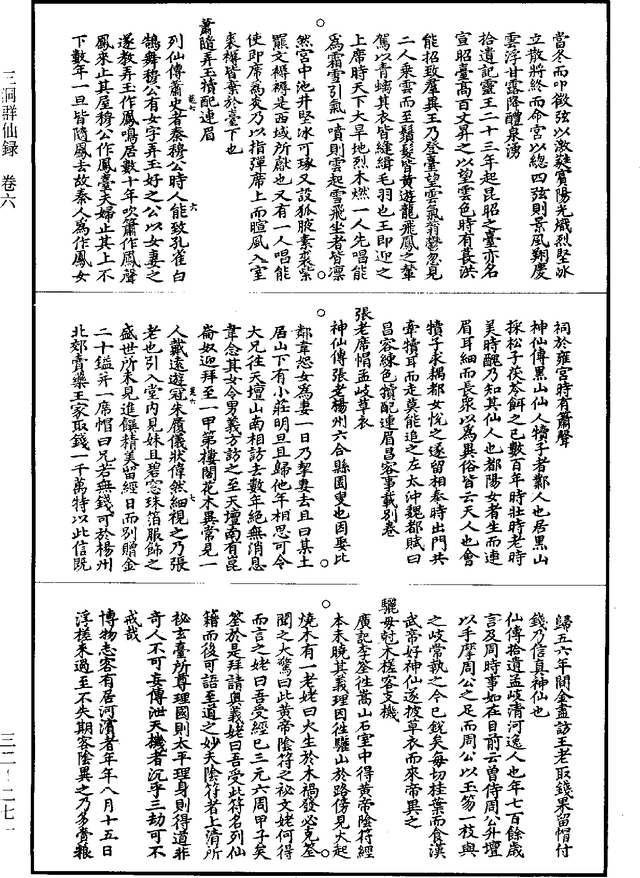 三洞群仙録 卷六
三二—二七一
當冬而叩徵弦以激蕤賓陽光熾烈堅冰
立散將終而命宮以總四弦則景風翔慶
雲浮甘露降醴泉湧
拾遺記靈王二十三年起昆昭之臺亦名
宣昭臺高百丈昇之以望雲色時有萇洪
能招致羣異王乃登臺望雲氣蓊鬱忽見
二人乘雲而至鬚髮皆黃遊龍飛鳳之輦
駕以青螭其衣皆縫緝毛羽也王即迎之
上席時天下大旱地烈木燃一人先唱能
為霜雪引氣一噴則雲起雪飛坐者皆凛
然宮中池井堅冰可琢又設狐腋素裘紫
羆文褥褥是西域所獻也又有一人唱能
使即席為炎乃以指彈席上而暄風入室
裘褥皆棄於臺下也
蕭隨弄玉犢配連眉
列仙傳蕭史者秦穆公時人能致孔雀白
鵠舞穆公有女字弄玉好之公以女妻之
遂教弄玉作鳳鳴居數十年吹簫作鳳聲
鳳來止其屋穆公作鳳臺夫婦止其上不
下數年一旦皆隨鳳去故秦人為作鳳女
祠於雍宮時有簫聲
神仙傳黑山仙人犢子者鄴人也居黑山
採松子茯苓餌之已數百年時壯時老時
美時醜乃知其仙人也都陽女者生而連
眉耳細而長衆以為異俗皆云天人也會
犢子來耦都女悅之遂留相奉時出門共
牽犢耳而走莫能追之左太沖魏都賦曰
昌容練色犢配連眉昌容事載別卷
張老席帽孟岐草衣
神仙傳張老楊州六合縣園叟也因娶比
鄰韋恕女為妻一日乃挈妻去且曰某土
居山下有小莊明旦且歸他年相思可令
大兄往天壇山南相訪去數年絕無消息
韋念其女令男義方訪之至天壇南有崑
崙奴迎拜至一甲第樓閣花木異常見一
人戴遠遊冠朱履儀狀偉然細視之乃張
老也引入堂內見妹且碧窓珠箔服飾之
盛世所未見進饌精美留經日而別贈金
二十鎰并一席帽曰兄若無錢可於楊州
北邸賣藥王家取錢一千萬特以此信既
歸五六年間金盡訪王老取錢果留帽付
錢乃信真神仙也
仙傳拾遺孟岐清河逸人也年七百餘歲
言及周時事如在目前云曾侍周公升壇
以手摩周公之足而周公以玉笏一枝與
之岐常執之今已銳矣每切桂葉而食漢
武帝好神仙遂披草衣而來帝異之
驪母尅木槎客支機
廣記李筌往嵩山石室中得黃帝陰符經
本末曉其義理因往驪山於路傍見火起
燒木有一老姥曰火生於木禍發必克筌
聞之大驚曰此黃帝陰符之秘文姥何得
而言之姥曰吾受經已三元六周甲子矣
筌於是拜請奧義姥曰吾受此符名列仙
籍而後可語至道之妙夫陰符者上清所
祕玄臺所尊理國則太平理身則得道非
奇人不可妄傳泄天機者沉乎三劫可不
戒哉
博物志客有居河濱者年年八月十五日
浮槎來過至不失期客陰異之乃多賫粮